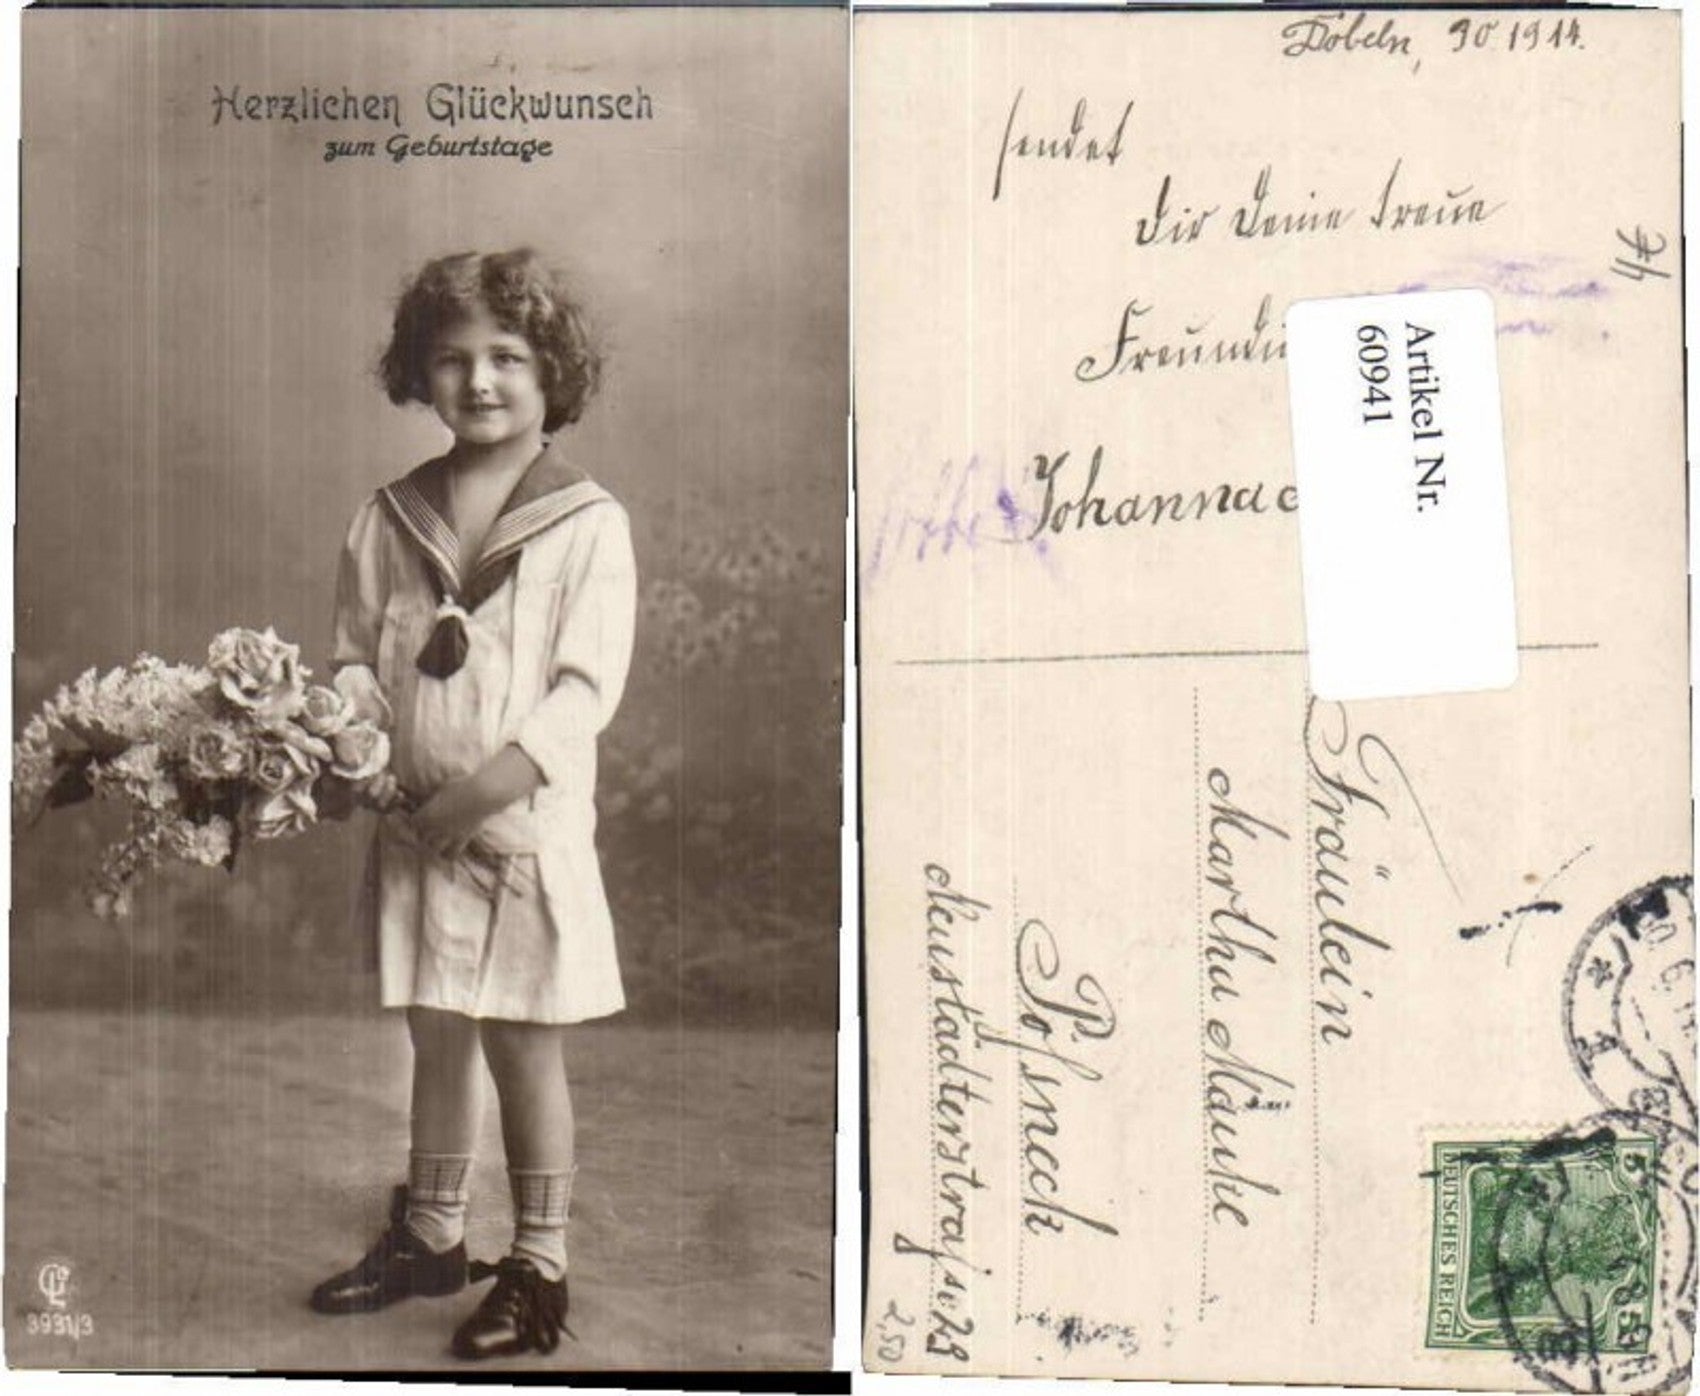 Herzlichen Glückwunsch
zum Geburtstage
3931/3
Döbeln, 30 1914.
sendet
Dir Deine treue
Freundi
Johanna
Artikel Nr.
60941
Fräulein
Martha Mauke
Pößneck
Neustädterstraße 29
2,50
DEUTSCHES REICH
5